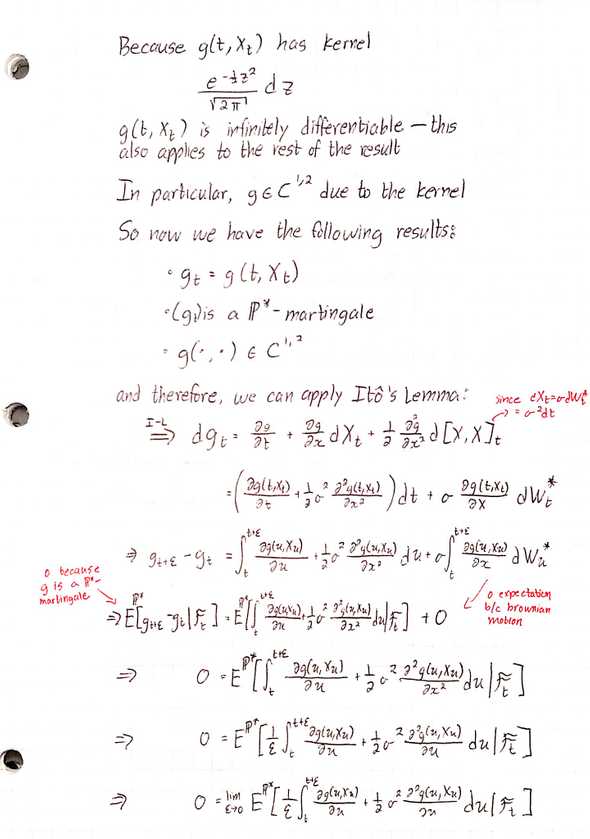 Because g(t, X_t) has kernel
e^{-½z²}/√2π dz
g(t, X_t) is infinitely differentiable — this
also applies to the rest of the result
In particular, g ∈ C^{1,2} due to the kernel
So now we have the following results:
• g_t = g(t, X_t)
• (g_t) is a ℙ* - martingale
• g(·,·) ∈ C^{1,2}
and therefore, we can apply Itô's Lemma:
since dX_t = σdW_t^*
I-L ⇒ dg_t = ∂g/∂t + ∂g/∂x dX_t + 1/2 ∂²g/∂x² d[X,X]_t → = σ²dt
= (∂g(t,X_t)/∂t + 1/2 σ² ∂²g(t,X_t)/∂x²) dt + σ ∂g(t,X_t)/∂X dW_t^*
⇒ g_{t+ε} - g_t = ∫_t^{t+ε} ∂g(u,X_u)/∂u + 1/2 σ² ∂²g(u,X_u)/∂x² du + σ∫_t^{t+ε} ∂g(u,X_u)/∂x dW_u^*
0 because
g is a ℙ*-
martingale
0 expectation
b/c brownian
motion
⇒ E^{ℙ*}[g_{t+ε} - g_t | F_t] = E^{ℙ*}[∫_t^{t+ε} ∂g(u,X_u)/∂u + 1/2 σ² ∂²g(u,X_u)/∂x² du | F_t] + 0
⇒ 0 = E^{ℙ*}[∫_t^{t+ε} ∂g(u,X_u)/∂u + 1/2 σ² ∂²g(u,X_u)/∂x² du | F_t]
⇒ 0 = E^{ℙ*}[1/ε ∫_t^{t+ε} ∂g(u,X_u)/∂u + 1/2 σ² ∂²g(u,X_u)/∂u du | F_t]
⇒ 0 = lim_{ε→0} E^{ℙ*}[1/ε ∫_t^{t+ε} ∂g(u,X_u)/∂u + 1/2 σ² ∂²g(u,X_u)/∂x² du | F_t]